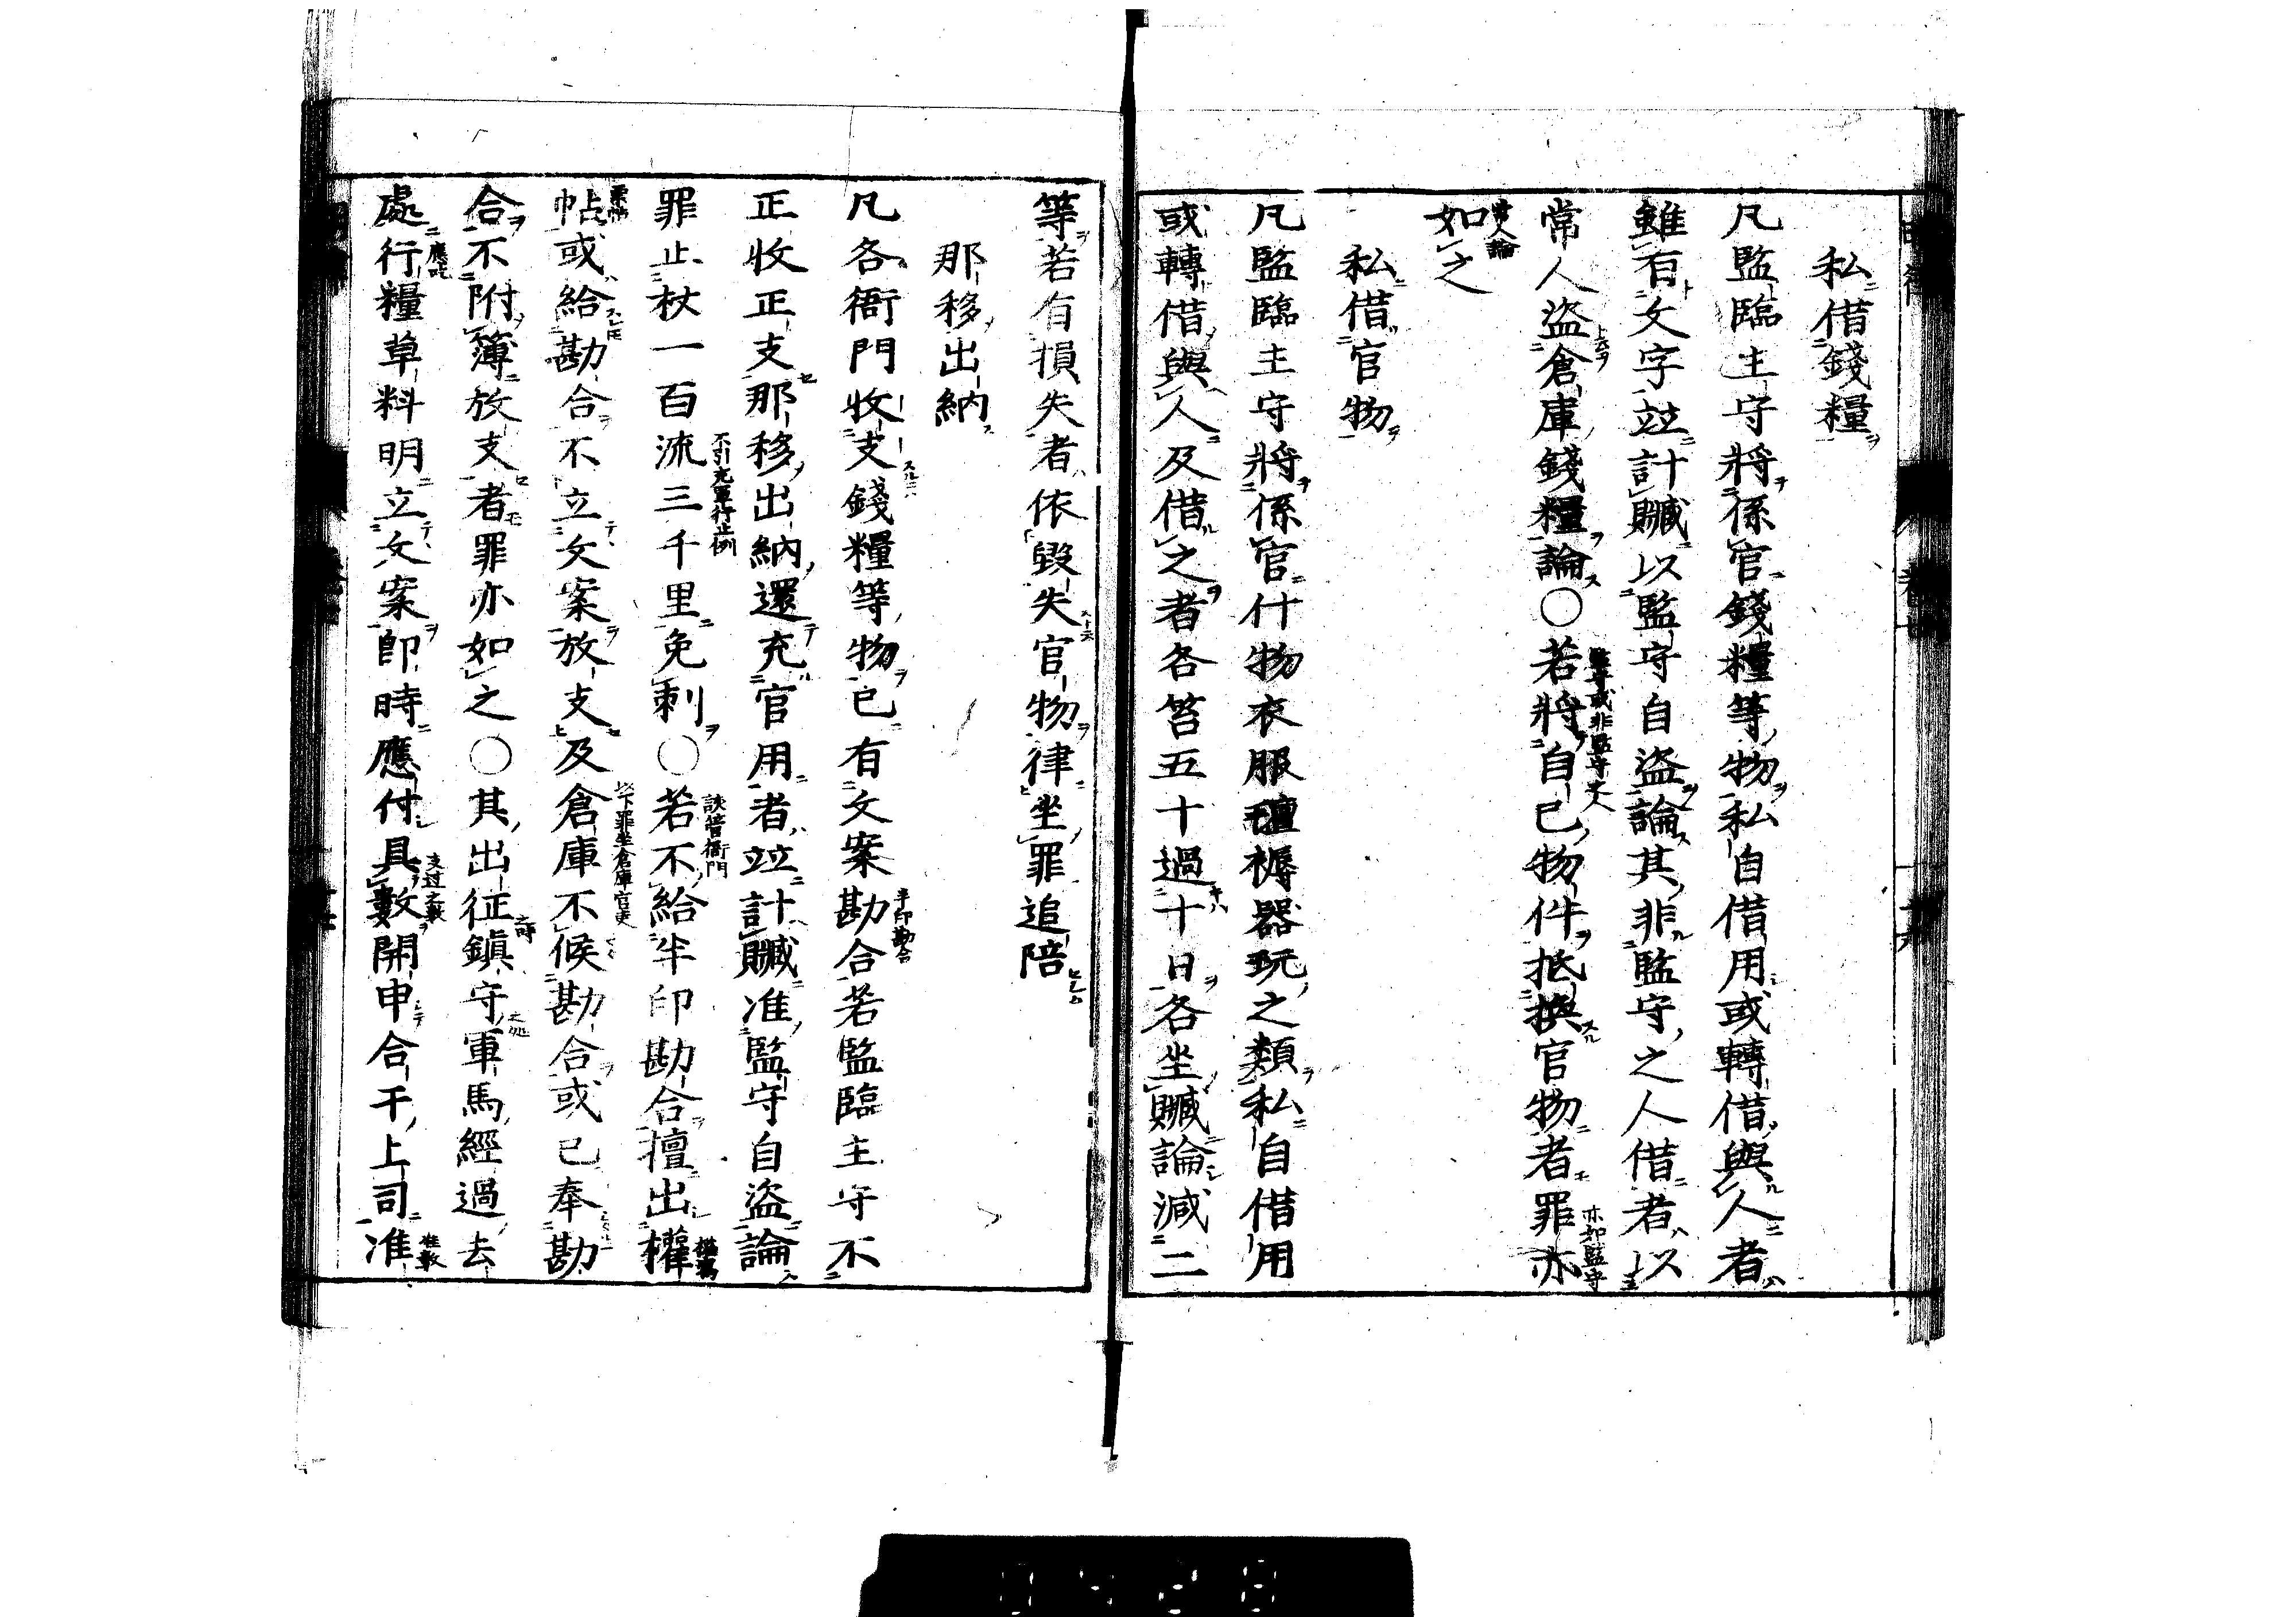 私借錢糧
凡監臨主守將係官錢糧等物私自借用或轉借與人者
雖有文字竝計贓以監守自盜論其非監守之人借者以
常人盜倉庫錢糧論〇若將自己物件抵換官物者罪亦
監守或非監守之人
亦如監守
如之
常人論
私借官物
凡監臨主守將係官什物衣服氊褥器玩之類私自借用
或轉借與人及借之者各笞五十過十日各坐贓論減二
等若有損失者依毀失官物律坐罪追陪
那移出納
凡各衙門收支錢糧等物已有文案勘合若監臨主守不
半印勘合
正收正支那移出納還充官用者竝計贓准監守自盜論
罪止杖一百流三千里免刺〇若不給半印勘合擅出權
不引充軍行止例
該管衙門
帖或給勘合不立文案放支及倉庫不候勘合或已奉勘
以下罪坐倉庫官吏
合不附簿放支者罪亦如之〇其出征鎮守軍馬經過去
處行糧草料明立文案即時應付具數開申合干上司准
應吃
支过之数
准数